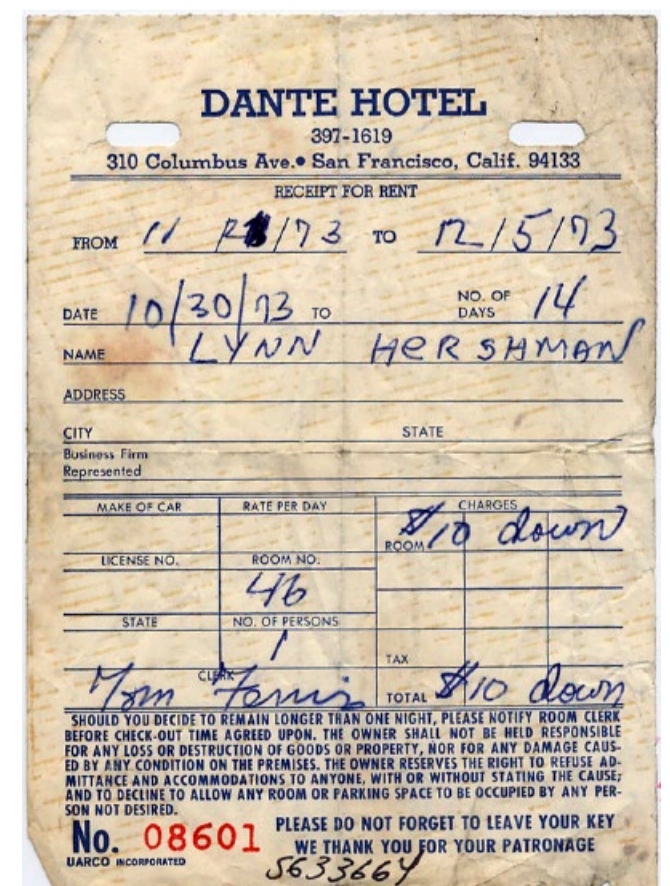 DANTE HOTEL
397-1619
310 Columbus Ave.• San Francisco, Calif. 94133
RECEIPT FOR RENT
FROM 11 /73 TO 12/5/73
DATE 10/30/73 TO NO. OF DAYS 14
NAME LYNN HERSHMAN
ADDRESS
CITY STATE
Business Firm
Represented
MAKE OF CAR RATE PER DAY CHARGES
ROOM $10 down
LICENSE NO. ROOM NO.
46
STATE NO. OF PERSONS
1
TAX
CLERK Tom TOTAL $10 down
SHOULD YOU DECIDE TO REMAIN LONGER THAN ONE NIGHT, PLEASE NOTIFY ROOM CLERK
BEFORE CHECK-OUT TIME AGREED UPON. THE OWNER SHALL NOT BE HELD RESPONSIBLE
FOR ANY LOSS OR DESTRUCTION OF GOODS OR PROPERTY, NOR FOR ANY DAMAGE CAUS-
ED BY ANY CONDITION ON THE PREMISES. THE OWNER RESERVES THE RIGHT TO REFUSE AD-
MITTANCE AND ACCOMMODATIONS TO ANYONE, WITH OR WITHOUT STATING THE CAUSE;
AND TO DECLINE TO ALLOW ANY ROOM OR PARKING SPACE TO BE OCCUPIED BY ANY PER-
SON NOT DESIRED.
No. 08601 PLEASE DO NOT FORGET TO LEAVE YOUR KEY
WE THANK YOU FOR YOUR PATRONAGE
UARCO INCORPORATED
5633664